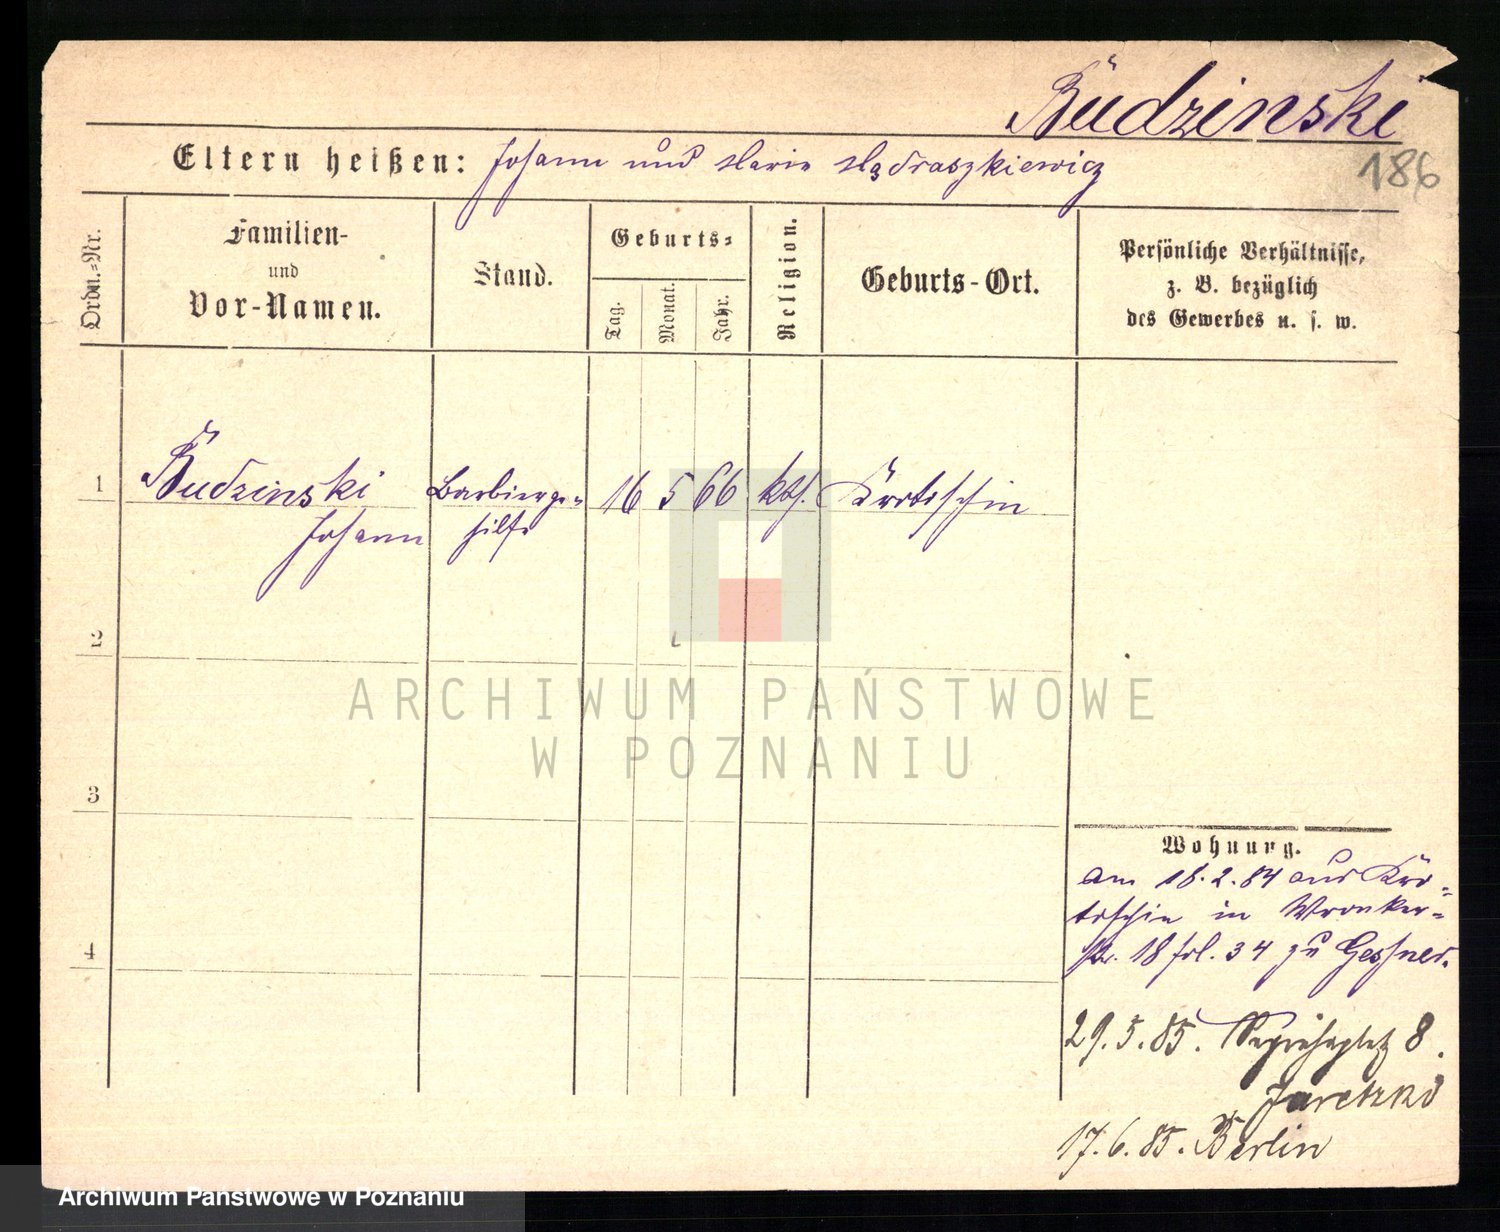 Budzinski
186
Eltern heißen: Johann und Marie Mądraszkiewicz
Ordn.-Nr.
Familien-
und
Vor-Namen.
Stand.
Geburts-
Tag.
Monat.
Jahr.
Religion.
Geburts-Ort.
Persönliche Verhältnisse,
z. B. bezüglich
des Gewerbes u. s. w.
1
Budzinski
Johann
Barbierge-
hilfe
16
5
66
kth.
Krotoschin
2
3
4
Wohnung.
am 18.2.84 aus Kro-
toschin in Wronker-
str. 18 fol. 34 zu Gessner.
29.5.85. Sapiehaplatz 8.
Jaretzki
17.6.85. Berlin
ARCHIWUM PAŃSTWOWE
W POZNANIU
Archiwum Państwowe w Poznaniu